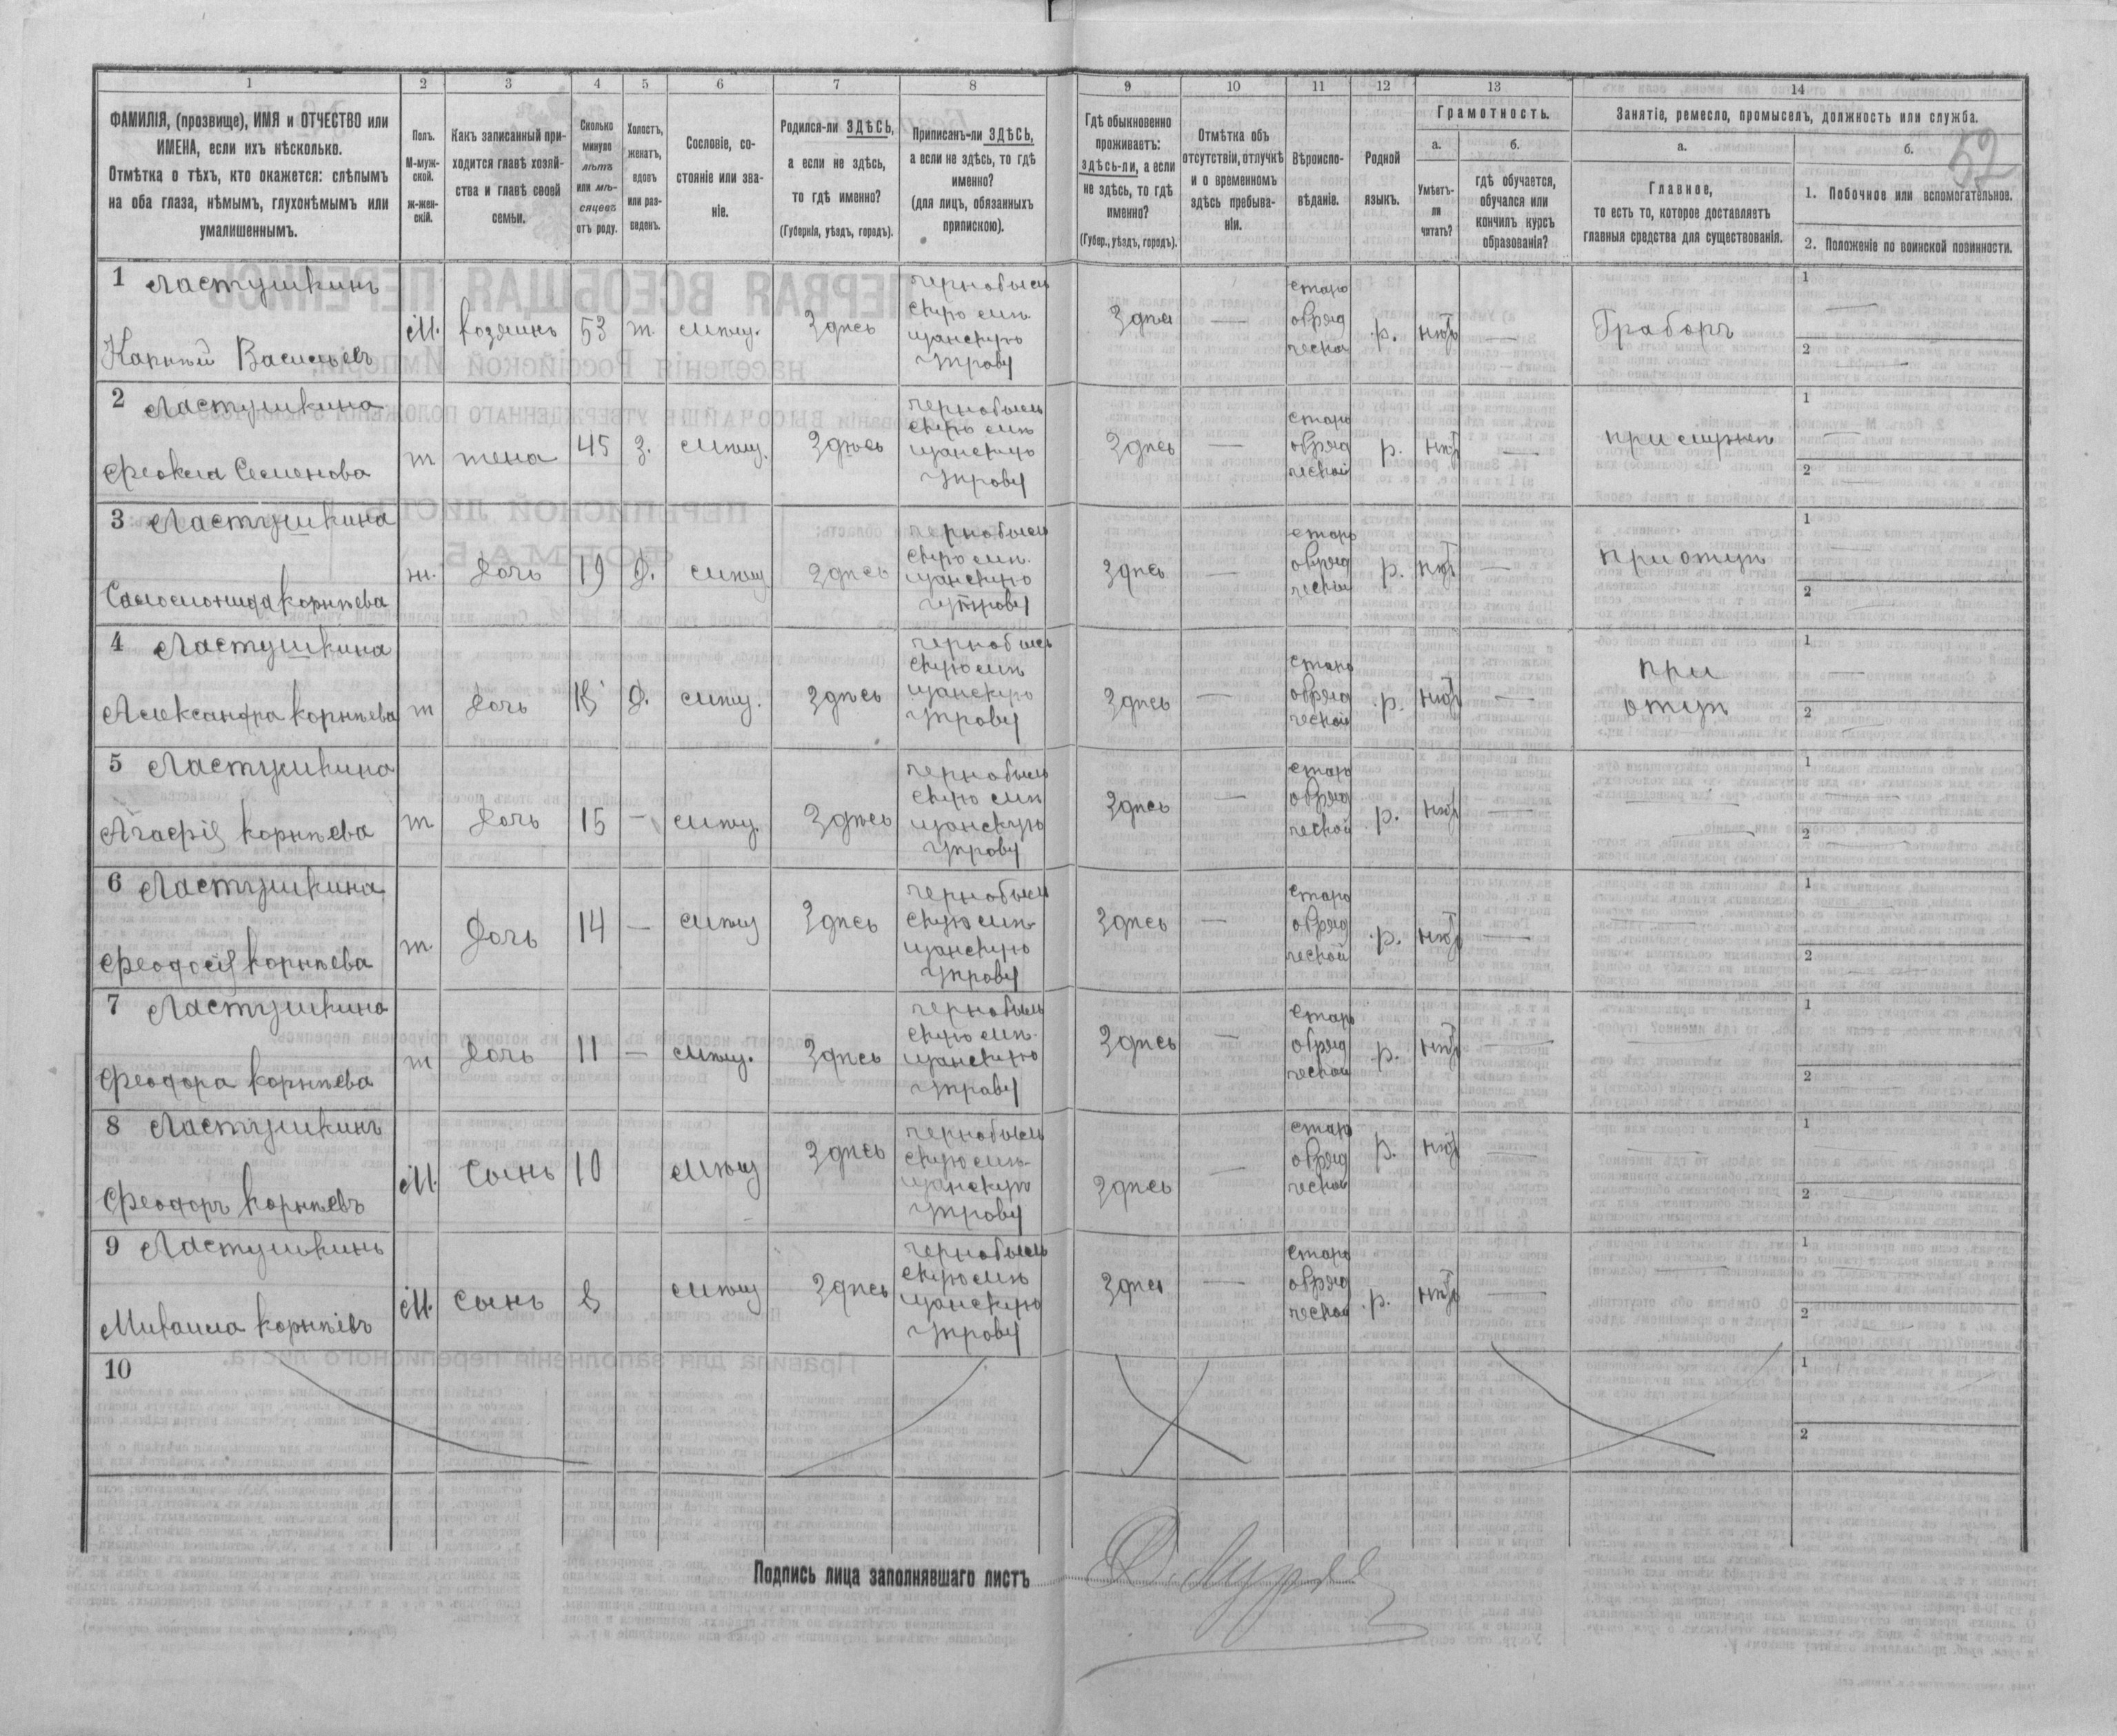 1 2 3 4 5 6 7 8 9 10 11 12 13 14
ФАМИЛІЯ, (прозвище), ИМЯ и ОТЧЕСТВО или
ИМЕНА, если ихъ нѣсколько.
Отмѣтка о тѣхъ, кто окажется: слѣпымъ
на оба глаза, нѣмымъ, глухонѣмымъ или
умалишеннымъ.
Полъ.
М-муж-
ской.
ж-жен-
скій.
Какъ записанный при-
ходится главѣ хозяй-
ства и главѣ своей
семьи.
Сколько
минуло
лѣтъ
или мѣ-
сяцевъ
отъ роду.
Холостъ,
женатъ,
вдовъ
или раз-
веденъ.
Сословіе, со-
стояніе или зва-
ніе.
Родился-ли ЗДѢСЬ,
а если не здѣсь,
то гдѣ именно?
(Губернія, уѣздъ, городъ).
Приписанъ-ли ЗДѢСЬ,
а если не здѣсь, то гдѣ
именно?
(для лицъ, обязанныхъ
припискою).
Гдѣ обыкновенно
проживаетъ:
здѣсь-ли, а если
не здѣсь, то гдѣ
именно?
(Губер., уѣздъ, городъ).
Отмѣтка объ
отсутствіи, отлучкѣ
и о временномъ
здѣсь пребыва-
ніи.
Вѣроиспо-
вѣданіе.
Родной
языкъ.
Грамотность.
а.
Умѣетъ-
ли
читать?
б.
гдѣ обучается,
обучался или
кончилъ курсъ
образованія?
Занятіе, ремесло, промыселъ, должность или служба.
а.
Главное,
то есть то, которое доставляетъ
главныя средства для существованія.
б.
52
1. Побочное или вспомогательное.
2. Положеніе по воинской повинности.
1 Ластушкинъ
Карнѣй Васильевъ
М. хозяинъ 53 ж. мѣщ. Здѣсь
чернобыль
скую мѣ-
щанскую
управу
Здѣсь —
старо
обряд
ческой
р. нѣтъ — Граборъ
1 —
2 —
2 Ластушкина
Феокла Семенова
ж жена 45 З. мѣщ. Здѣсь
чернобыль
скую мѣ
щанскую
управу
Здѣсь —
старо
обряд
ческой
р. нѣтъ — при мужѣ
1 —
2 —
3 Ластушкина
Соломонида Корнѣева
ж. дочь 19 д. мѣщ Здѣсь
чернобыль
скую мѣ-
щанскую
управу
Здѣсь —
старо
обряд
ческой
р. нѣтъ — при отцѣ
1 —
2 —
4 Ластушкина
Александра Корнѣева
ж дочь 18 д. мѣщ. Здѣсь
чернобыль
скую мѣ
щанскую
управу
Здѣсь —
старо
обряд
ческой
р. нѣтъ —
при
отцѣ
1 —
2 —
5 Ластушкина
Агафія Корнѣева
ж дочь 15 — мѣщ. Здѣсь
чернобыль
скую мѣ
щанскую
управу
Здѣсь —
старо
обряд
ческой
р. нѣтъ — —
1 —
2 —
6 Ластушкина
Феодосія Корнѣева
ж дочь 14 — мѣщ Здѣсь
чернобыль
скую мѣ-
щанскую
управу
Здѣсь —
старо
обряд
ческой
р. нѣтъ — —
1 —
2 —
7 Ластушкина
Феодора Корнѣева
ж дочь 11 — мѣщ. Здѣсь
чернобыль
скую мѣ-
щанскую
управу
Здѣсь —
старо
обряд
ческой
р. нѣтъ — —
1 —
2 —
8 Ластушкинъ
Феодоръ Корнѣевъ
М. сынъ 10 мѣщ Здѣсь
чернобыль
скую мѣ-
щанскую
управу
Здѣсь —
старо
обряд
ческой
р. нѣтъ — —
1 —
2 —
9 Ластушкинъ
Михаила Корнѣевъ
М. сынъ 8 мѣщ Здѣсь
чернобыль
скую мѣ
щанскую
управу
Здѣсь —
старо
обряд
ческой
р. нѣтъ — —
1 —
2 —
10
1
2
Подпись лица заполнявшаго листъ